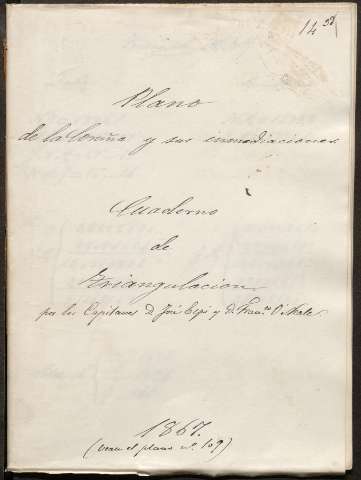 Plano
de la Coruña y sus inmediaciones
Cuaderno
de
Triangulacion
por los Capitanes D. José Espi y D. Franco O'Neale
1867.
(vease el plano nº 109)